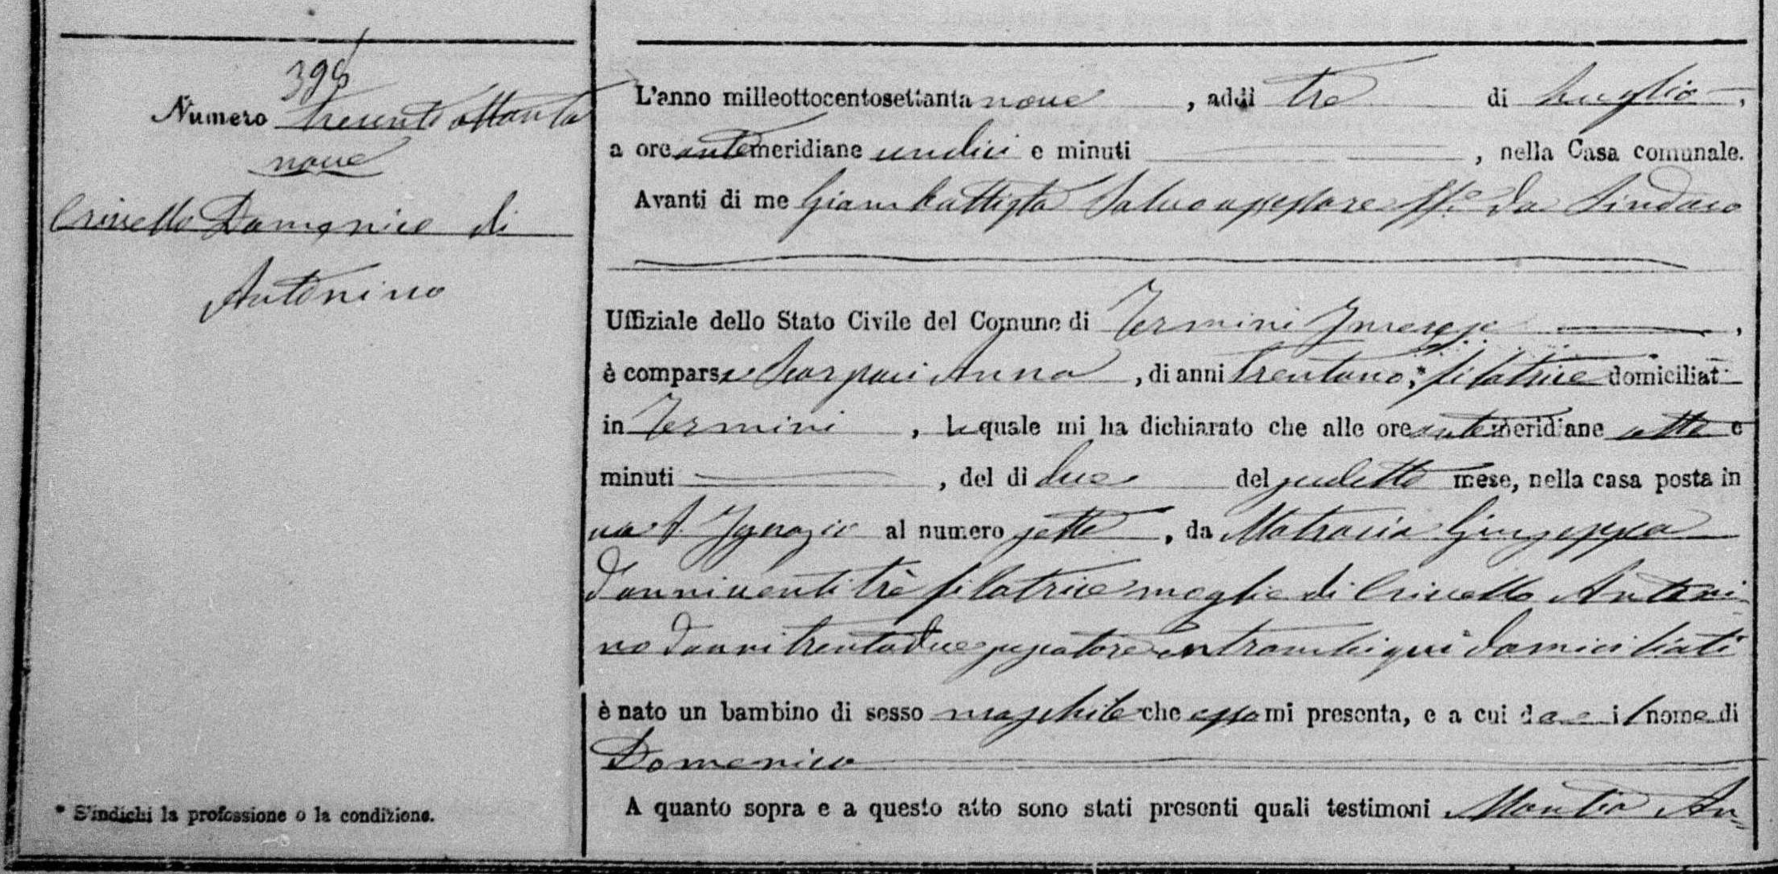 398
Numero Trecento ottanta
nove
Crivello Domenico di
Antonino
* S'indichi la professione o la condizione.
L'anno milleottocentosettanta nove , addì tre di Luglio ,
a ore antemeridiane undici e minuti , nella Casa comunale.
Avanti di me Giambattista Salvo assessore ff.e da Sindaco
Uffiziale dello Stato Civile del Comune di Termini Imerese ,
è comparsa Scarpaci Anna , di anni trentuno, * filatrice domiciliat
in Termini , la quale mi ha dichiarato che alle ore antemeridiane otto e
minuti , del dì due del sudetto mese, nella casa posta in
via S. Ignazio al numero sette , da Matracia Giuseppa
d'anni ventitrè filatrice moglie di Crivello Antoni-
no d'anni trentadue entrambi qui domiciliati
è nato un bambino di sesso maschile che essa mi presenta, e a cui da il nome di
Domenico
A quanto sopra e a questo atto sono stati presenti quali testimoni Mantia An-